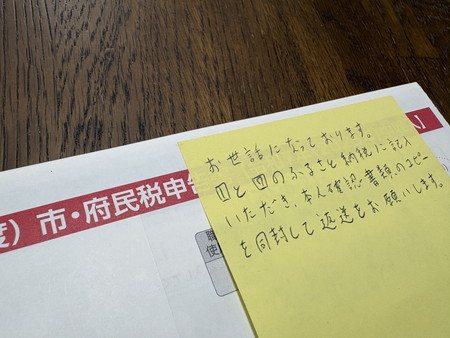 度）市・府民税申告
お世話になっております。
1と7のふるさと納税に記入
いただき、本人確認書類のコピー
を同封して返送をお願いします。
職
使